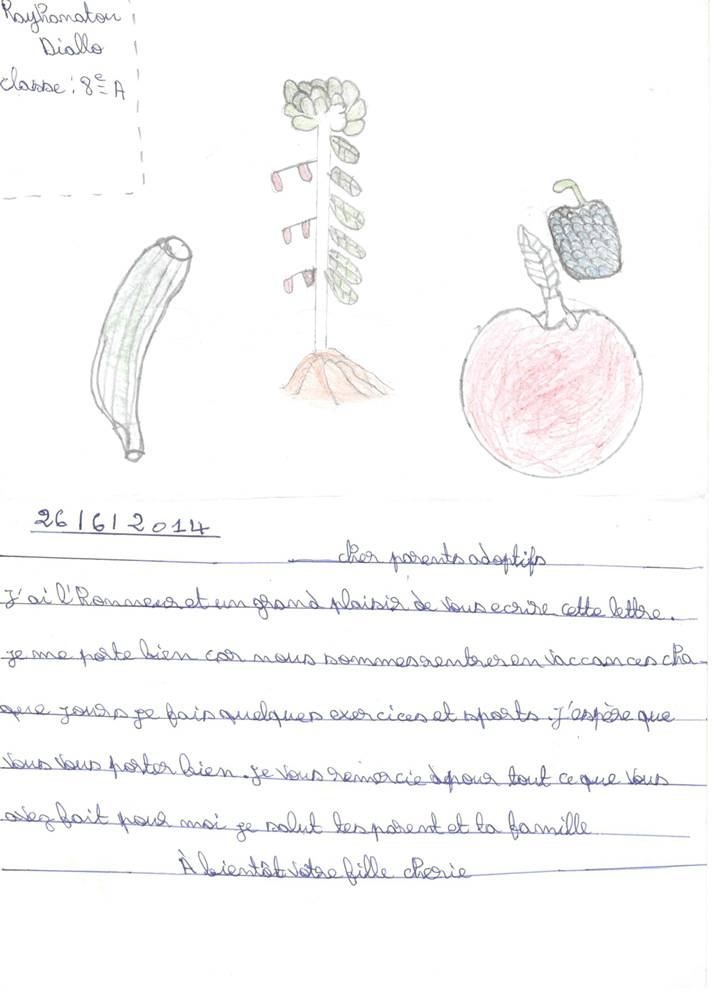 Rayhanatou
Diallo
classe : 8e A
26/6/2014
cher parents adoptifs
J'ai l'Honneur et un grand plaisir de vous ecrire cette lettre.
je me porte bien car nous sommes rentrer en vaccances cha-
que jours je fais quelques exercices et sports. J'espère que
vous vous porter bien. Je vous remercie pour tout ce que vous
avez fait pour moi je salut tes parent et ta famille
À bientôt votre fille cherie